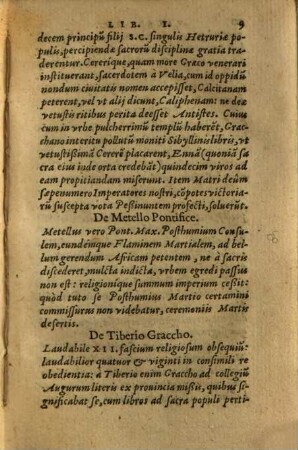 LIB. I. 9
decem principũ filij S.C. singulis Hetruriæ po
pulis, percipiendæ sacrorũ disciplinæ gratia tra
derentur. Cererique, quam more Græco venerari
instituerant, sacerdotem à Velia, cum id oppidũ
nondum ciuitatis nomen accepisset, Calcitanam
peterent, vel vt alij dicunt, Caliphenam: ne deæ
vetustis ritibus perita deesset Antistes. Cuius
cum in vrbe pulcherrimũ templũ haberẽt, Grac
chano interitu pollutũ moniti Sibyllinis libris, vt
vetustissimã Cererẽ placarent, Ennã (quoniã sa
cra eius inde orta credebãt) quindecim viros ad
eam propitiandam miserunt. Item Matri deûm
sæpenumero Imperatores nostri, cõpotes victoria
rũ suscepta vota Pessinuntem profecti, soluerũt.
De Metello Pontifice.
Metellus vero Pont. Max. Posthumium Consu
lem, eundémque Flaminem Martialem, ad bel
lum gerendum Africam petentem, ne à sacris
discederet, mulcta indicta, vrbem egredi passus
non est: religionique summum imperium cessit:
quòd tuto se Posthumius Martio certamini
commissurus non videbatur, ceremoniis Martis
desertis.
De Tiberio Graccho.
Laudabile XII. fascium religiosum obsequiũ:
laudabilior quatuor & viginti in consimili re
obedientia: à Tiberio enim Graccho ad collegiũ
Augurum literis ex prouincia missis, quibus si
gnificabat se, cum libros ad sacra populi perti-